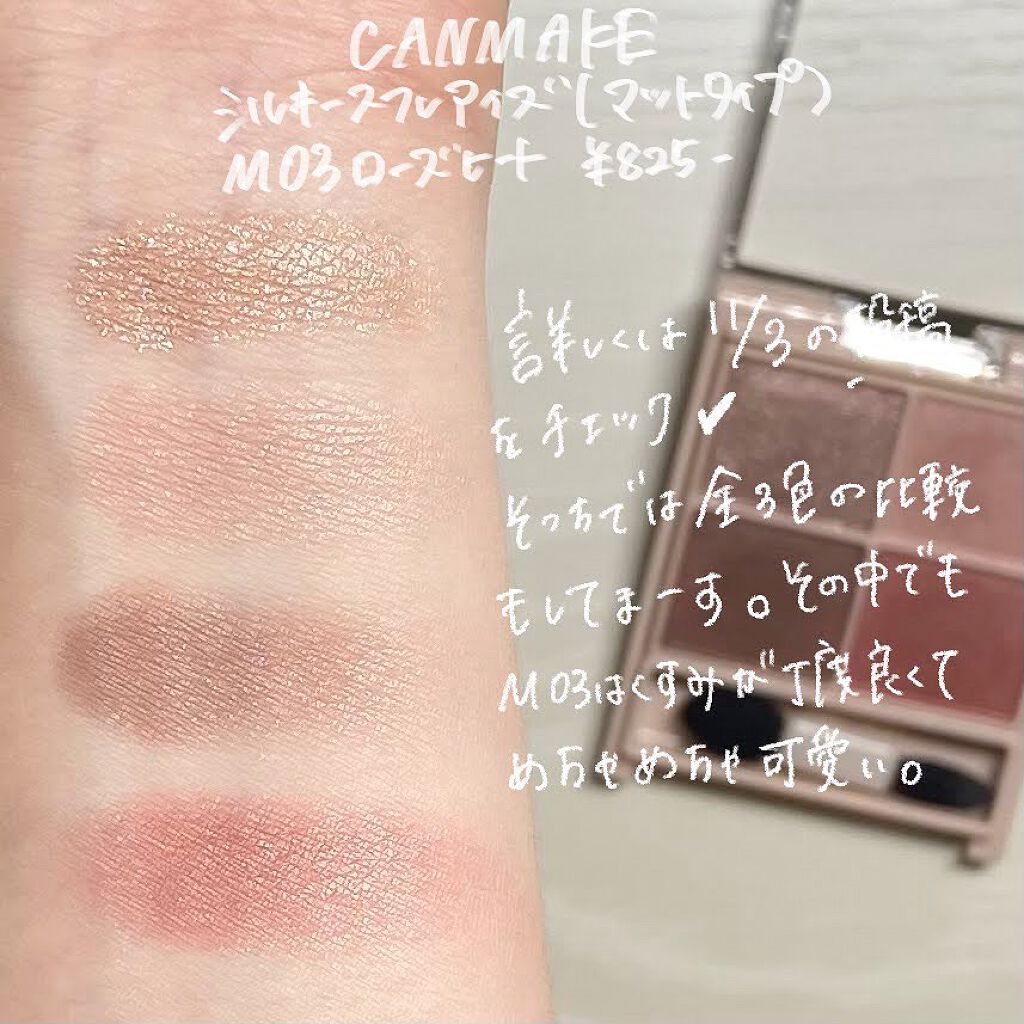 CANMAKE
シルキースフレアイズ(マットタイプ)
M03ローズヒート ¥825-
詳しくは 11/3の投稿
をチェック✔
そっちでは全3色の比較
もしてまーす。その中でも
M03はくすみが丁度良くて
めちゃめちゃ可愛い。